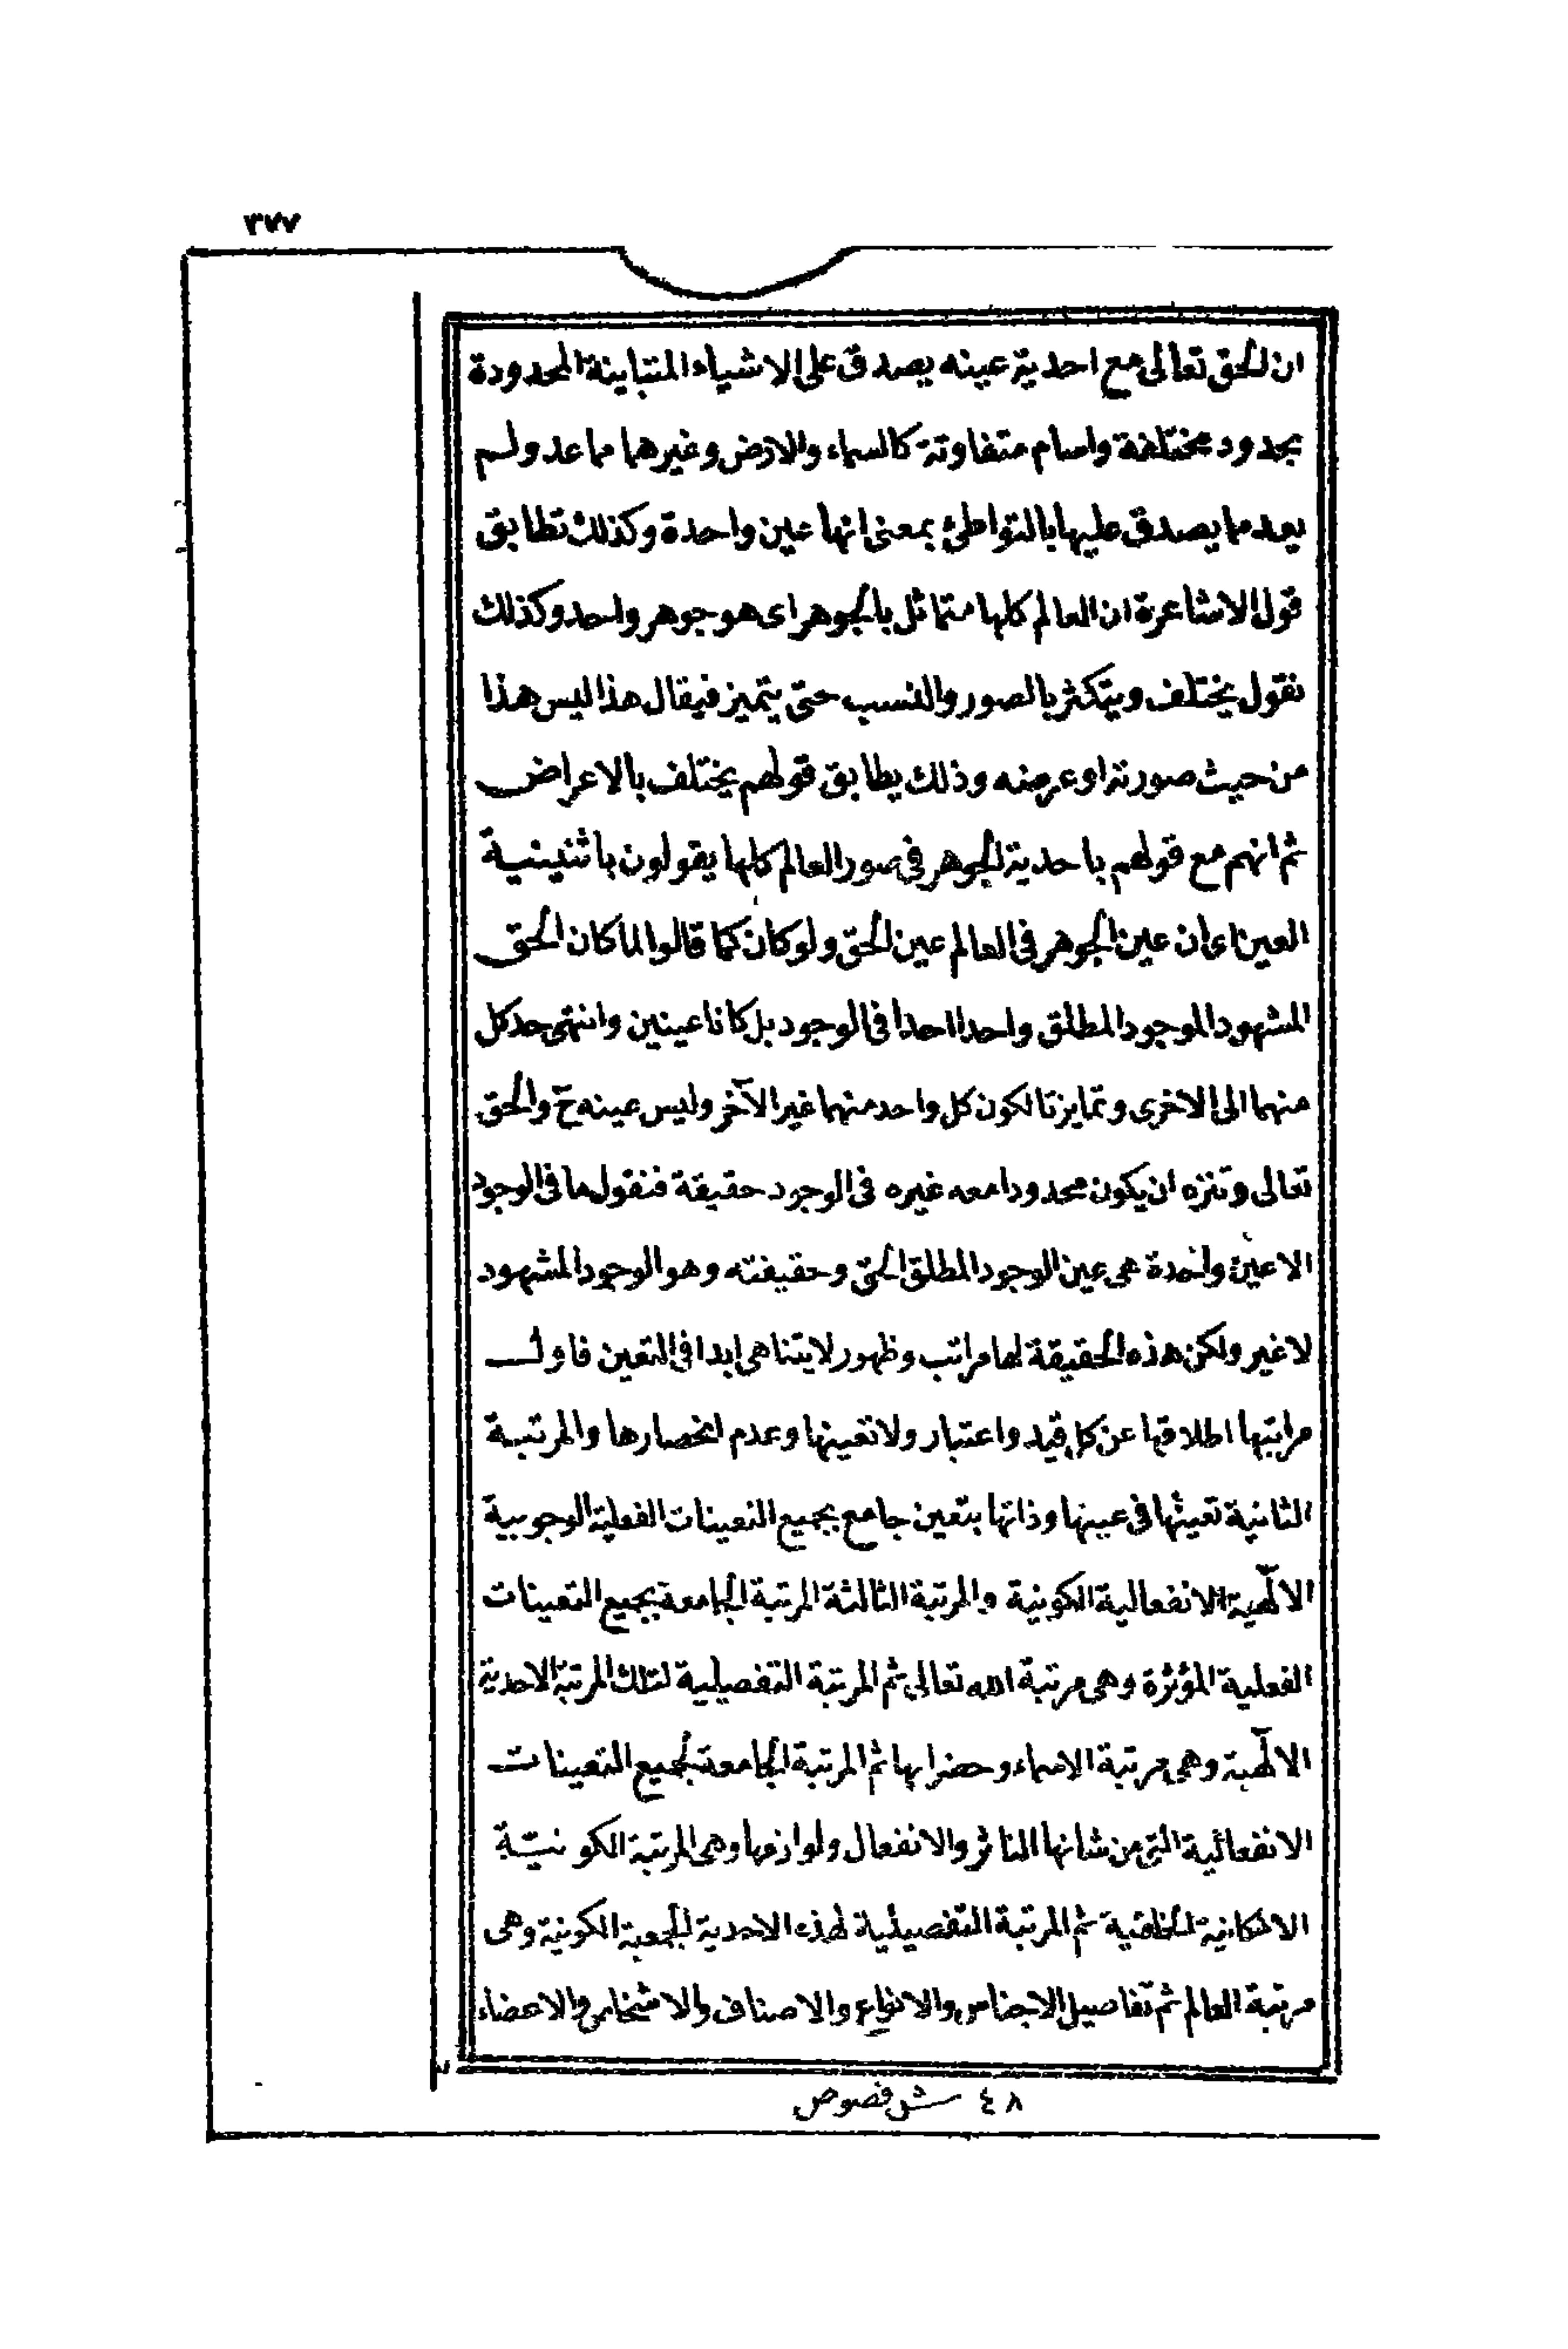 ٣٧٧
ان الحق تعالى مع احدية عينه يصدق على الاشياء المتباينة المحدودة
بحدود مختلفة واسام متفاوتة كالسماء والارض وغيرهما مما عد ولم
يعد مما يصدق عليها بالتواطئ بمعنى انها عين واحدة وكذلك تطابق
قول الاشاعرة ان العالم كلها متماثل بالجوهر اى هو جوهر واحد وكذلك
نقول يختلف ويتكثر بالصور والنسب حتى يتميز فيقال هذا ليس هذا
من حيث صورته او عرضه وذلك يطابق قولهم يختلف بالاعراض
ثم انهم مع قولهم باحدية الجوهر فى صور العالم كلها يقولون باثنينية
العين اى ان عين الجوهر فى العالم عين الحق ولو كان كما قالوا لما كان الحق
المشهود الموجود المطلق واحدا احدا فى الوجود بل كانا عينين وانتهى حد كل
منهما الى الاخرى وتمايزتا لكون كل واحد منهما غير الآخر وليس عينه ح والحق
تعالى وتنزه ان يكون محدودا معه غيره فى الوجود حقيقة فنقول ما فى الوجود
الا عين واحدة هى عين الوجود المطلق الحق وحقيقته وهو الوجود المشهود
لا غير ولكن هذه الحقيقة لها مراتب وظهور لا يتناهى ابدا فى التعين فاول
مراتبها اطلاقها عن كل قيد واعتبار ولا تعينها وعدم انحصارها والمرتبة
الثانية تعينها فى عينها وذاتها بتعين جامع بجميع التعينات الفعلية الوجوبية
الالٓهية الانفعالية الكونية والمرتبة الثالثة المرتبة الجامعة بجميع التعينات
الفعلية المؤثرة وهى مرتبة الله تعالى ثم المرتبة التفصيلية لتلك المرتبة الاحدية
الالٓهية وهى مرتبة الاسماء وحضراتها ثم المرتبة الجامعة لجميع التعينات
الانفعالية التى من شانها التاثر والانفعال ولوازمها وهى المرتبة الكونيّة
الامكانية الخلقية ثم المرتبة التفصيلية لهذه الاحدية الجمعية الكونية وهى
مرتبة العالم ثم تفاصيل الاجناس والانواع والاصناف والاشخاص والاعضاء
٤٨ ش فصوص